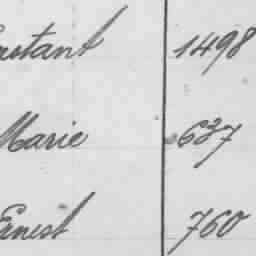 Constant 1498
Marie 637
Ernest 760